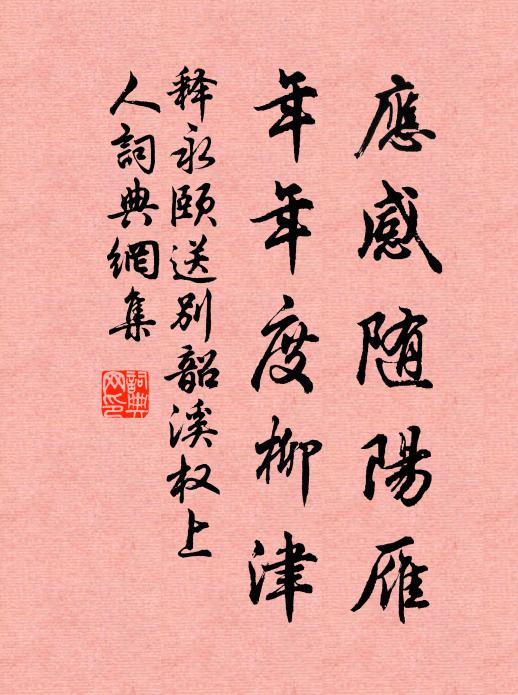 應感随陽雁
年年度柳津
释永頤送别韶溪权上
人詞典網集
詞典网印